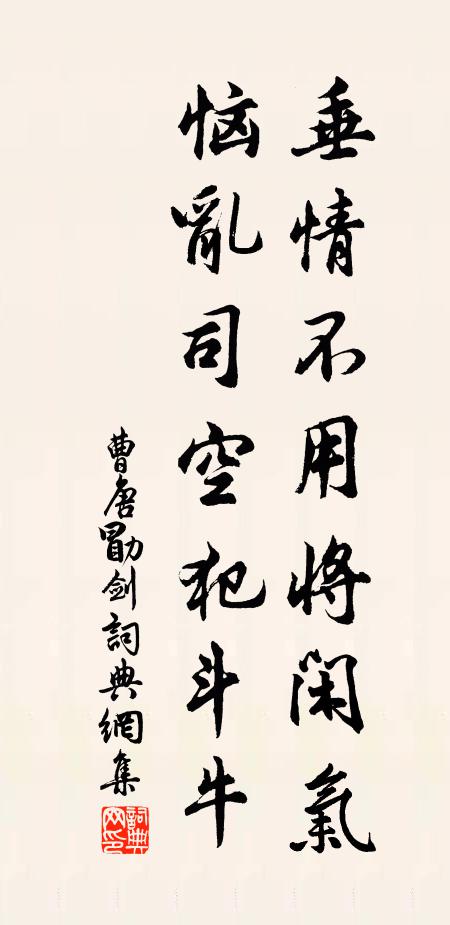 垂情不用将閑氣
恼亂司空犯斗牛
曹唐勖剑詞典網集
詞典網印